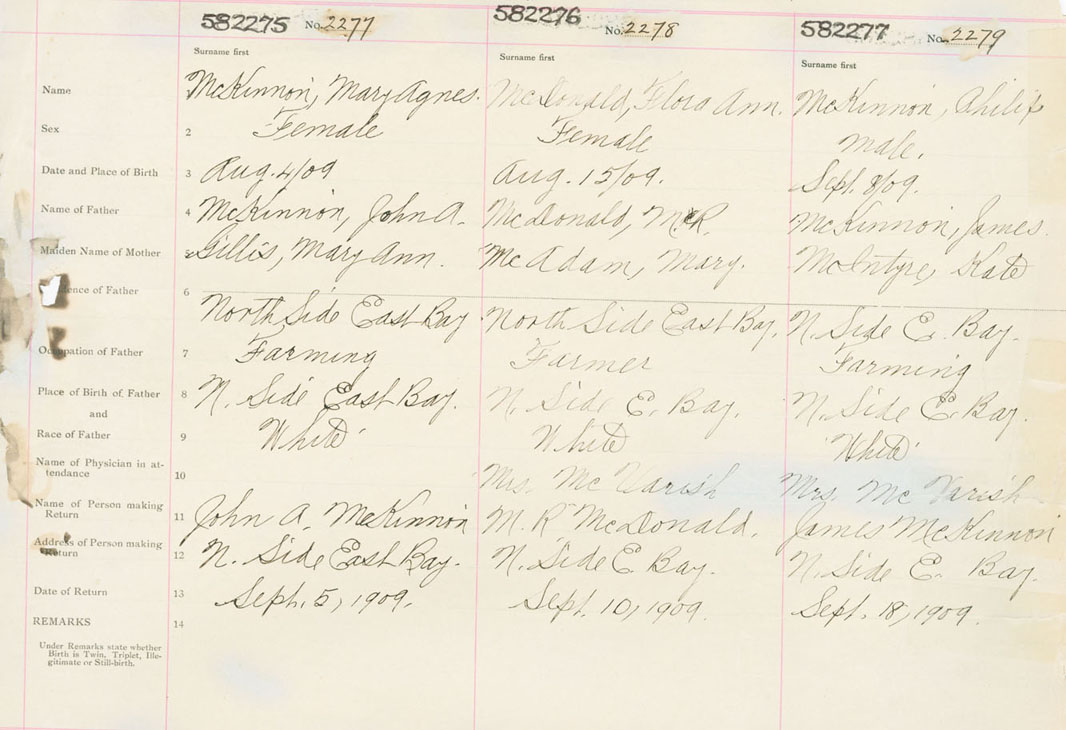 582275 No. 2277 582276 No. 2278 582277 No. 2279
Surname first Surname first Surname first
Name McKinnon, Mary Agnes. McDonald, Flora Ann. McKinnon, Philip
Sex 2 Female Female male.
Date and Place of Birth 3 Aug. 4/09 Aug. 15/09. Sept. 8/09.
Name of Father 4 McKinnon, John A. McDonald, M.R. McKinnon, James.
Maiden Name of Mother 5 Gillis, Mary Ann. McAdam, Mary. McIntyre, Kate
ence of Father 6 North Side East Bay North Side East Bay. N. Side E. Bay.
Occupation of Father 7 Farming Farmer Farming
Place of Birth of Father 8 N. Side East Bay. N. Side E. Bay. N. Side E. Bay.
and
Race of Father 9 White White White
Name of Physician in at-
tendance 10 Mrs. McVarish Mrs. McVarish
Name of Person making
Return 11 John A. McKinnon M. R McDonald. James McKinnon
Address of Person making
Return 12 N. Side East Bay. N. Side E Bay. N. Side E. Bay.
Date of Return 13 Sept. 5, 1909. Sept. 10, 1909. Sept. 18, 1909.
REMARKS 14
Under Remarks state whether
Birth is Twin, Triplet, Ille-
gitimate or Still-birth.